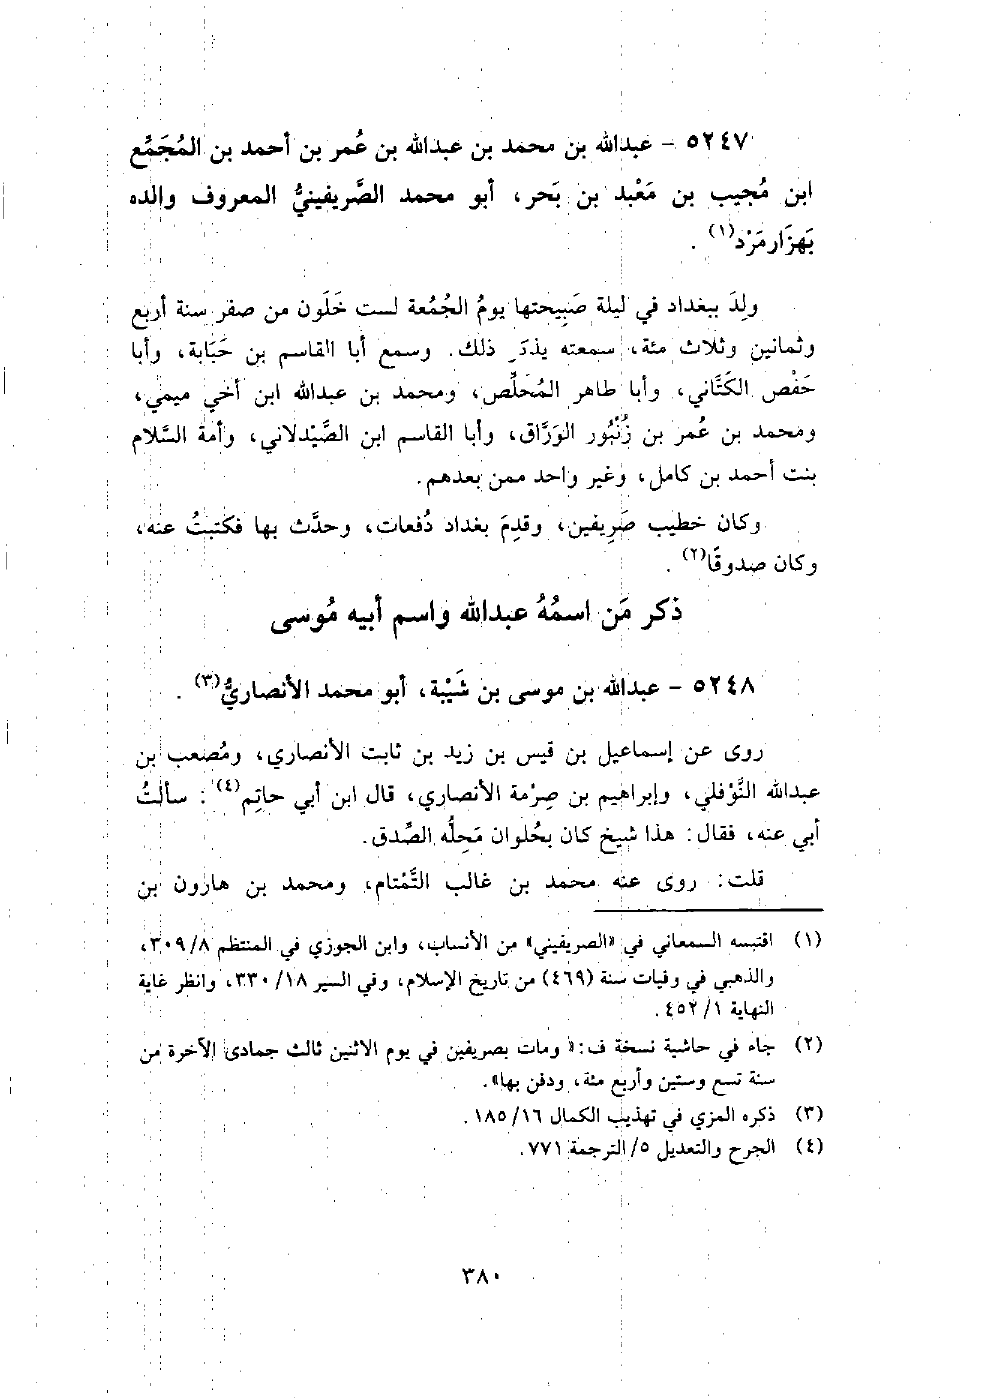 ٥٢٤٧ - عبدالله بن محمد بن عبدالله بن عُمر بن أحمد بن المُجَمِّع
ابن مُجيب بن مَعْبد بن بَحر، أبو محمد الصَّريفينيُّ المعروف والده
بَهزَارمَرْد(١) .
ولِدَ ببغداد في ليلة صَبِيحتها يومُ الجُمُعة لست خَلَون من صفر سنة أربع
وثمانين وثلاث مئة، سمعته يذكر ذلك. وسمع أبا القاسم بن حَبَابة، وأبا
حَفْص الكَتَّاني، وأبا طاهر المُخَلِّص، ومحمد بن عبدالله ابن أخي ميمي،
ومحمد بن عُمر بن زُنْبُور الوَرَّاق، وأبا القاسم ابن الصَّيْدلاني، وأمة السَّلام
بنت أحمد بن كامل، وغير واحد ممن بعدهم.
وكان خطيب صَرِيفين، وقدِمَ بغداد دُفعات، وحدَّث بها فكتبتُ عنه،
وكان صدوقًا(٢) .
ذكر مَن اسمُهُ عبدالله واسم أبيه مُوسى
٥٢٤٨ - عبدالله بن موسى بن شَيْبة، أبو محمد الأنصاريُّ(٣) .
روى عن إسماعيل بن قيس بن زيد بن ثابت الأنصاري، ومُصعب بن
عبدالله النَّوْفلي، وإبراهيم بن صِرْمة الأنصاري، قال ابن أبي حاتِم(٤) : سألتُ
أبي عنه، فقال: هذا شيخ كان بحُلوان مَحِلُّه الصِّدق.
قلت: روى عنه محمد بن غالب التَّمْتام، ومحمد بن هارون بن
(١) اقتبسه السمعاني في «الصريفيني» من الأنساب، وابن الجوزي في المنتظم ٨/ ٣٠٩،
والذهبي في وفيات سنة (٤٦٩) من تاريخ الإسلام، وفي السير ١٨/ ٣٣٠، وانظر غاية
النهاية ١/ ٤٥٢.
(٢) جاء في حاشية نسخة ف: «ومات بصريفين في يوم الاثنين ثالث جمادى الآخرة من
سنة تسع وستين وأربع مئة، ودفن بها».
(٣) ذكره المزي في تهذيب الكمال ١٦/ ١٨٥.
(٤) الجرح والتعديل ٥/ الترجمة ٧٧١.
٣٨٠